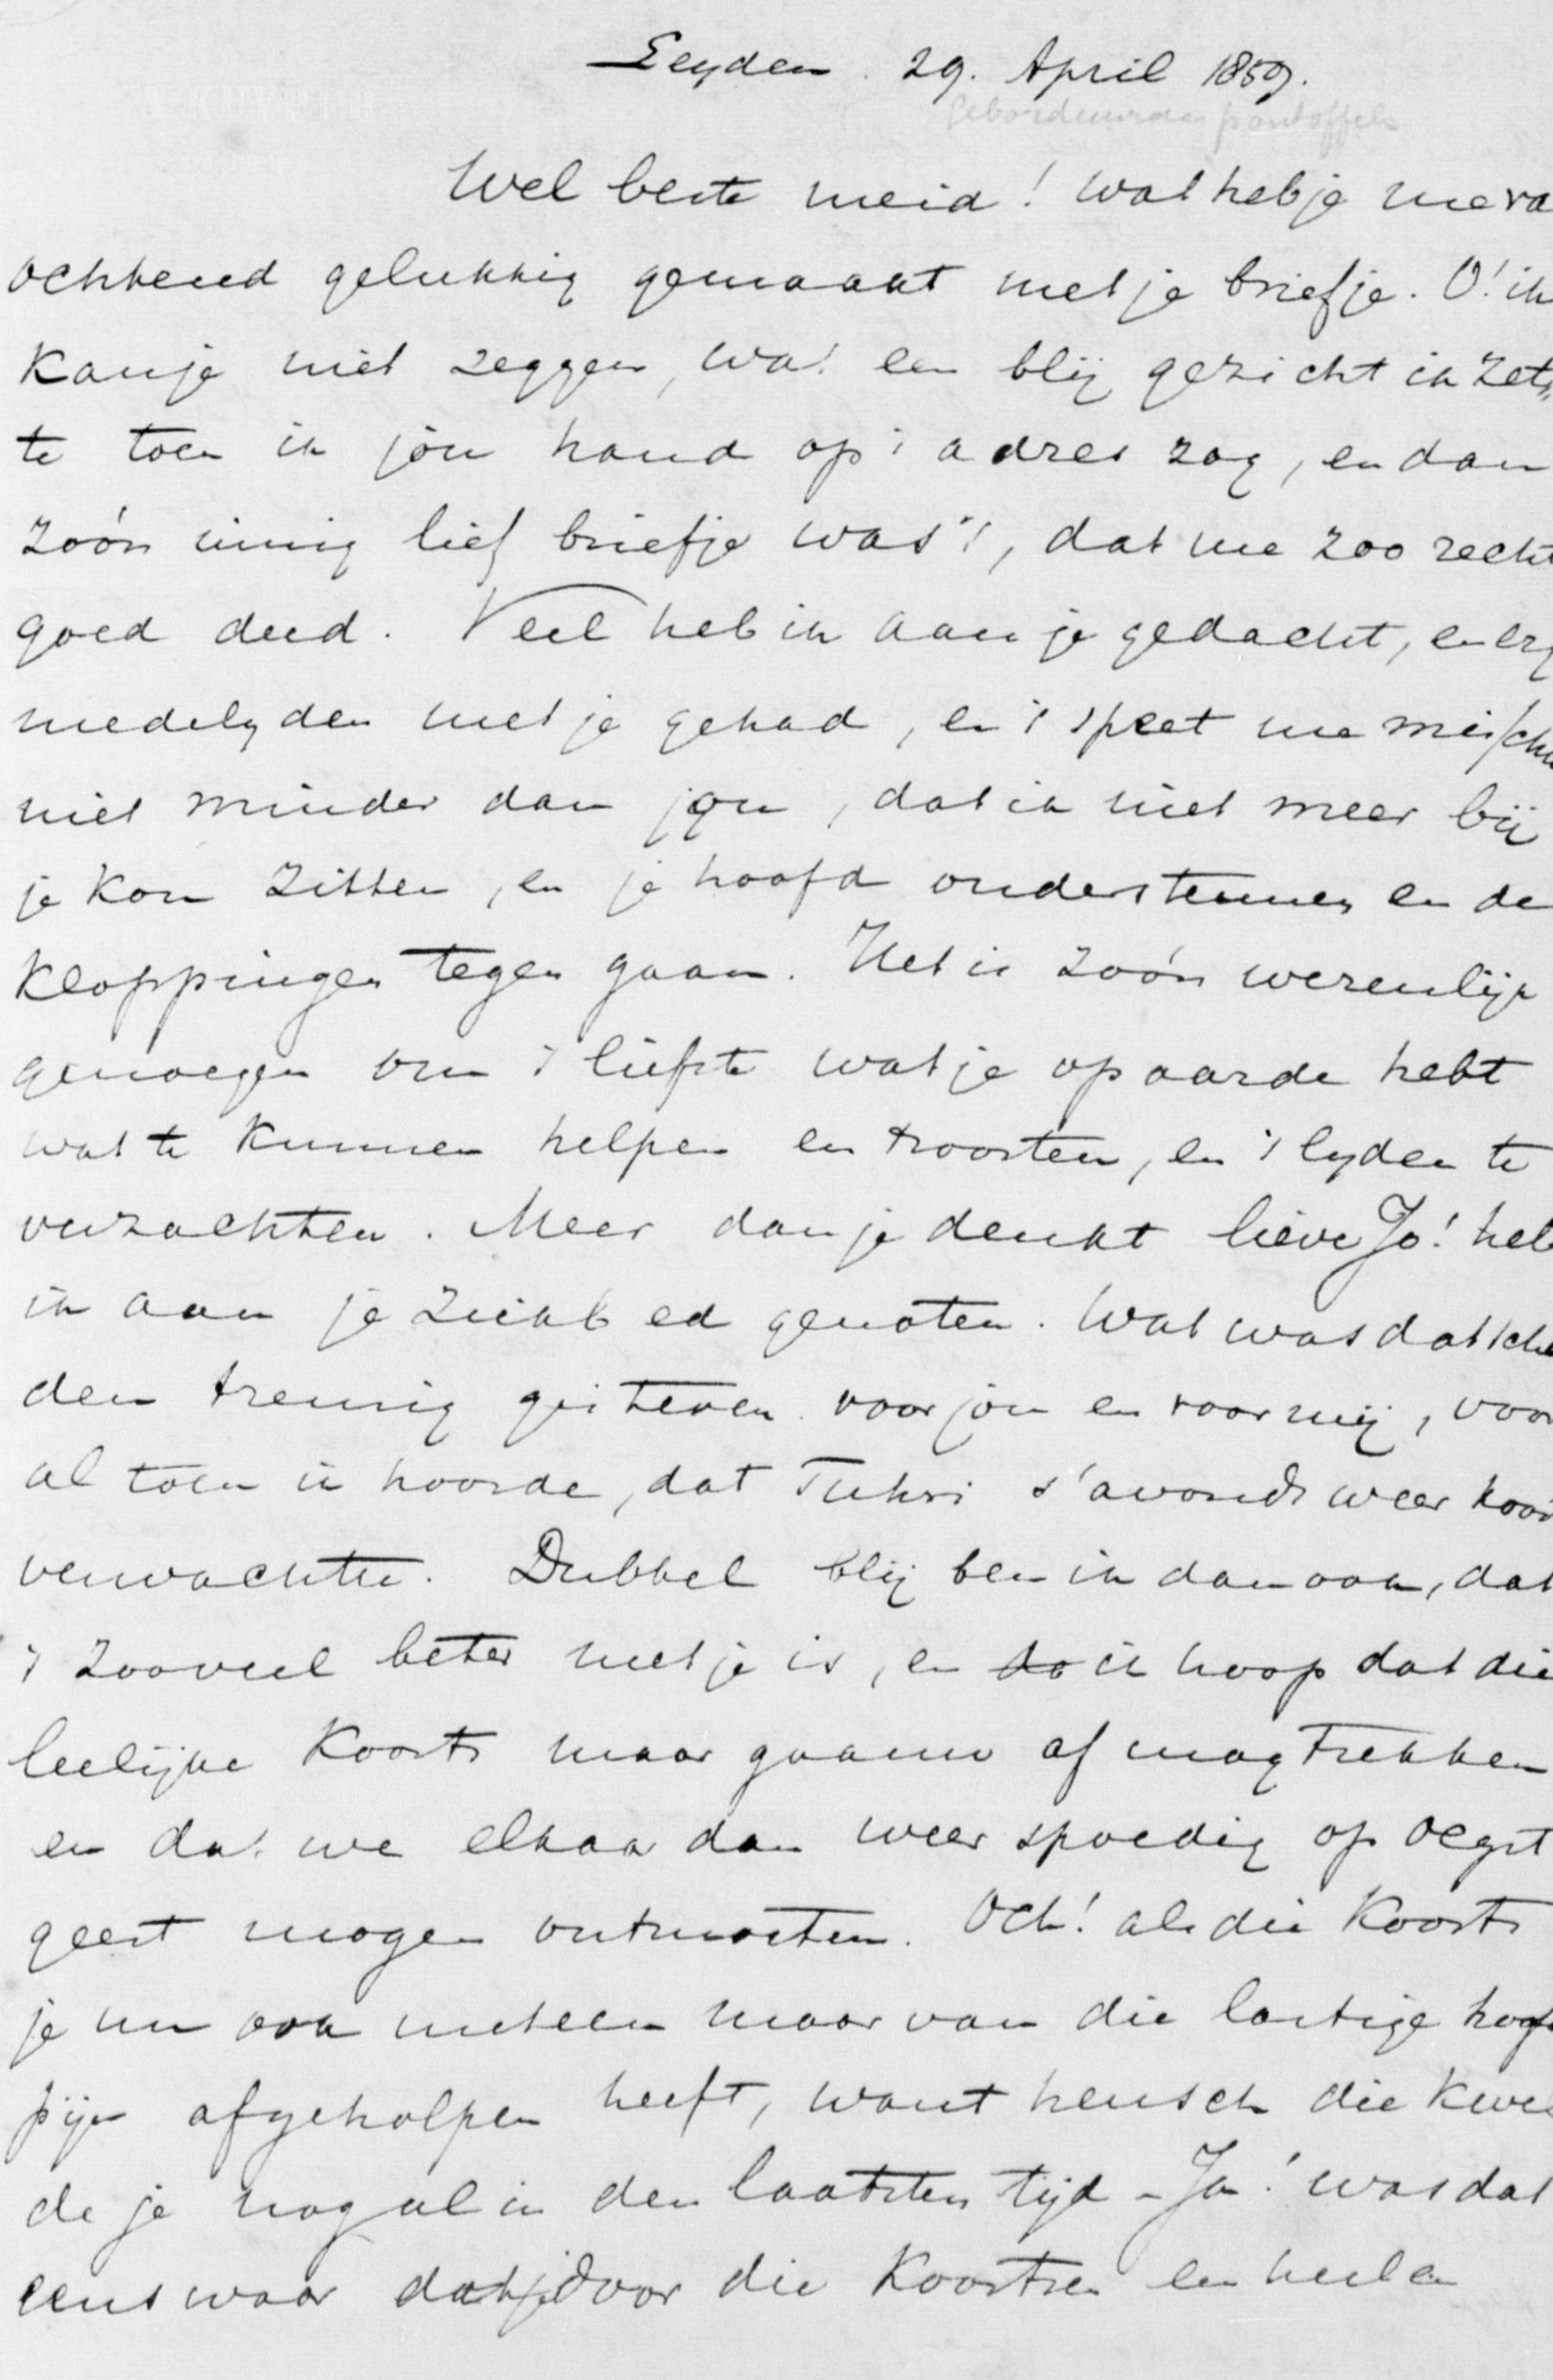 Leyden. 29. April 1859.
Geborduurde pantoffels
Wel beste meid! Wat heb je me va
ochtend gelukkig gemaakt met je briefje. O! ik
kan je niet zeggen, wat een blij gezicht ik zet„
te toen ik jou hand op 't adres zag, en dan
zóó'n innig lief briefje was 't, dat me zoo recht
goed deed. Veel heb ik aan je gedacht, en erg
medelyden met je gehad, en 't speet me missch
niet minder dan jou, dat ik niet meer bij
je kon zitten, en je hoofd ondersteunen en de
kloppingen tegen gaan. Het is zóó'n wezenlijk
genoegen om 't liefste wat je op aarde hebt
wat te kunnen helpen en troosten, en 't lyden te
verzachten. Meer dan je denkt lieve Jo! heb
ik aan je ziekbed genoten. Wat was dat sche
den treurig gisteren voor jou en voor mij, voor
al toen ik hoorde, dat s'avonds weer koor
verwachtte. Dubbel blij ben ik dan ook, dat
't zooveel beter met je is, en do ik hoop dat die
leelijke koorts maar gaauw af mag trekken
en dat we elkaar dan weer spoedig op Oegst
geest mogen ontmoeten. Och! als die koorts
je nu ook meteen maar van die lastige hoofd
pijn afgeholpen heeft, want heusch die kwel
de je nog al in den laatsten tijd – Ja! was dat
eens waar dat je door die koortsen een heele